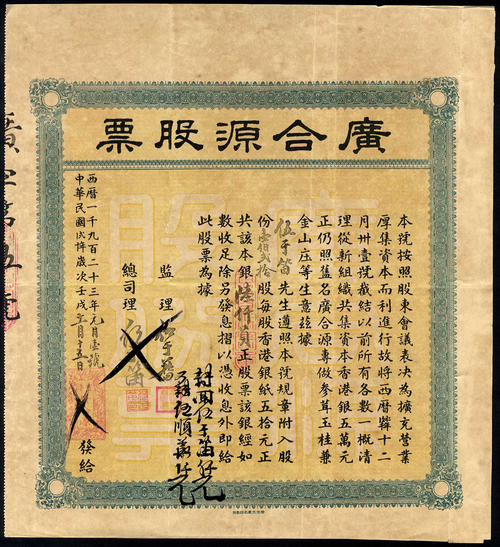 廣合源股票
本號按照股東會議表決為擴充營業
厚集資本而利進行故將西曆十二
月卅壹號截結以前所有各數一概清
理從新組織共集資本香港銀五萬元
正仍照舊名廣合源專做參茸玉桂兼
金山庄等生意茲據
伍于笛先生遵照本號規章附入股
份壹佰弍拾股每股香港銀紙五拾元正
共該本銀陸仟員正股票該銀經如
數收足除另發息摺以憑收息外即給
此股票為據
監理伍于
總司理伍于笛
西曆一千九百二十三年元月壹號
中華民國歲次壬戌十五日
發給
廣字第五號